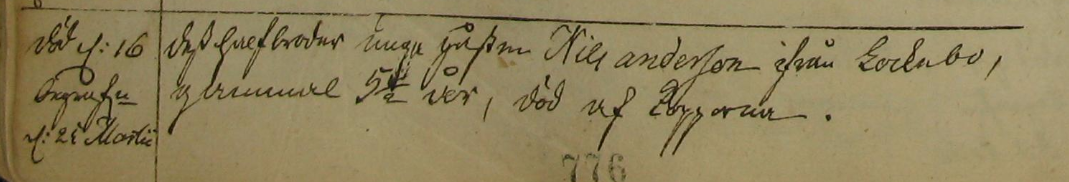 död d: 16
Begrafn
d: 21 Martii
deß halfbroder unga gåßen Nils anderson ifrån Lockebo,
gammal 5½ åer, död af Kopporna.
776